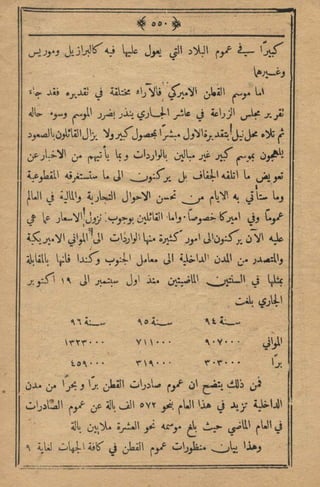 ﴿ ٥٥٠ ﴾
كبيرًا في عموم البلاد التي يعول عليها فيه كالبرازيل وموريس
وغيرهما
اما موسم القطن الاميركي فالآراء مختلفة في تقديره فقد جاء
تقرير مجلس الزراعة في عاشر الجاري ينذر بضرر الموسم وسوء حاله
ثم تلاه مجل نيل بتقديره الاول مبشرًا بمحصول كبير ولا يزال القائلون بالصعود
يلهجون بموسم كبير غير مبالين بالواردات وبما يأتيهم من الاخبار عن
تعويض ما اتلفه الجفاف بل يركنون الى ما ستستغرقه المقطوعية
وما ستأتي به الايام من تحسن الاحوال التجارية والمالية في العالم
عمومًا وفي اميركا خصوصًا . واما القائلين بوجوب نزول الاسعار عما هي
عليه الآن يركنون الى امور كثيرة منها الواردات الى المواني الاميريكية
والمتصدر من المدن الداخلية الى معامل الجنوب وكندا فانها بالمقابلة
بمثلها في السنتين الماضيتين منذ اول سبتمبر الى ١٩ اكتوبر
الجاري بلغت
سنة ٩٤ سنة ٩٥ سنة ٩٦
المواني ٩٠٧٠٠٠ ٧١١٠٠٠ ١٣٢٣٠٠٠
برًا ٣٠٣٠٠٠ ٣١٩٠٠٠ ٤٥٩٠٠٠
فمن ذلك يتضح ان عموم صادرات القطن برًا وبحرًا من مدن
الداخلية تزيد في هذا العام بنحو ٥٧٢ الف بالة عن عموم الصادرات
في العام الماضي حيث بلغ موسمه نحو العشرة ملايين بالة
وهذا بيان منظورات عموم القطن في كافة الجهات لغاية ٩